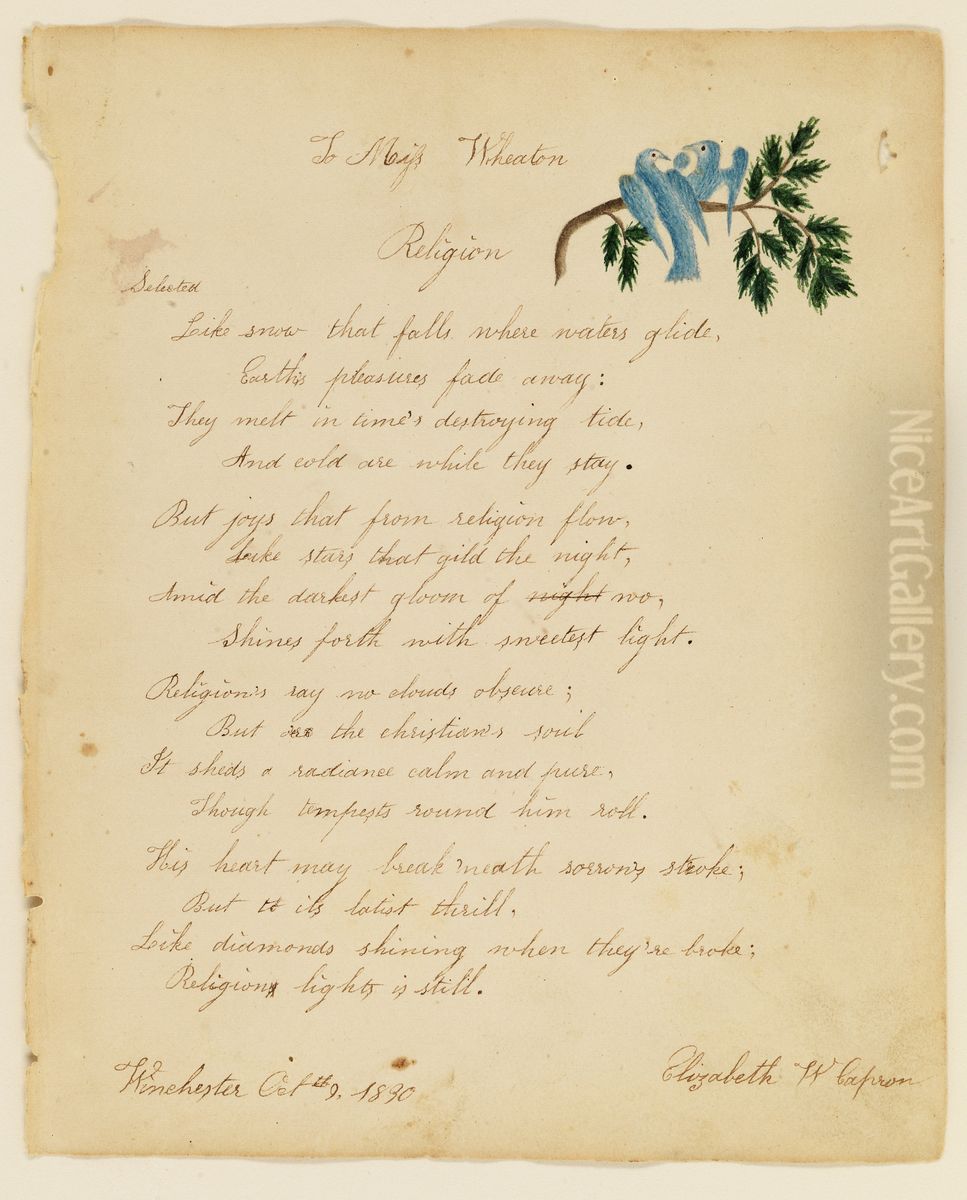 To Miss Wheaton
Religion
Selected
Like snow that falls where waters glide,
Earth's pleasures fade away:
They melt in time's destroying tide,
And cold are while they stay.
But joys that from religion flow,
Like stars that gild the night,
Amid the darkest gloom of night wo,
Shines forth with sweetest light.
Religion's ray no clouds obscure;
But the christian's soul
It sheds a radiance calm and pure,
Though tempests round him roll.
His heart may break 'neath sorrow's stroke;
But to its latist thrill,
Like diamonds shining when they're broke;
Religions lights is still.
Winchester Oct th 9, 1830
Elizabeth W Capron
NiceArtGallery.com